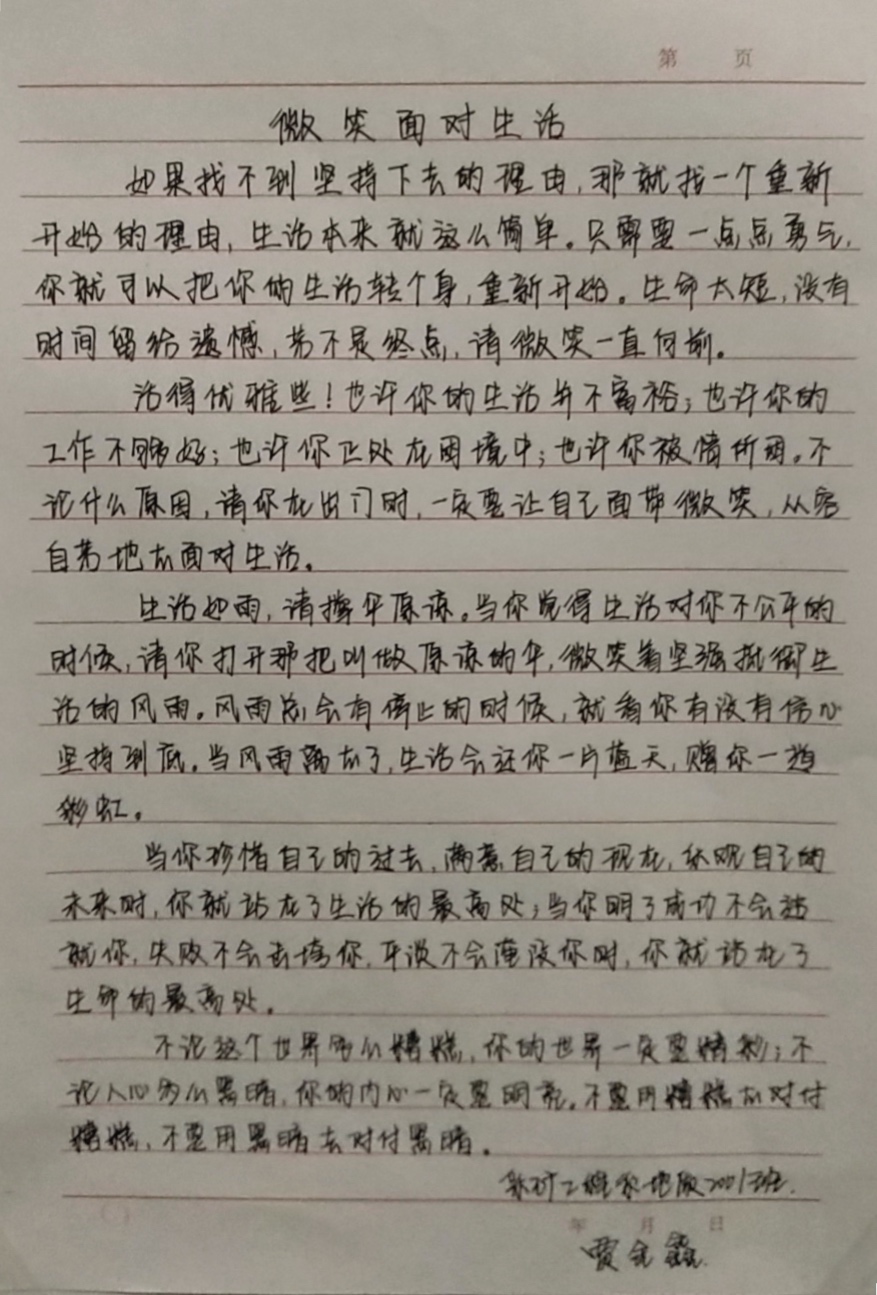 第 页
微笑面对生活
如果找不到坚持下去的理由,那就找一个重新
开始的理由,生活本来就这么简单。只需要一点点勇气,
你就可以把你的生活转个身,重新开始。生命太短,没有
时间留给遗憾,若不是终点,请微笑一直向前。
活得优雅些!也许你的生活并不富裕;也许你的
工作不够好;也许你正处在困境中;也许你被情所困。不
论什么原因,请你在出门时,一定要让自己面带微笑,从容
自若地去面对生活。
生活如雨,请撑伞原谅。当你觉得生活对你不公平的
时候,请你打开那把叫做原谅的伞,微笑着坚强抵御生
活的风雨。风雨总会有停止的时候,就看你有没有信心
坚持到底。当风雨离去了,生活会还你一片蓝天,赠你一道
彩虹。
当你珍惜自己的过去,满意自己的现在,乐观自己的
未来时,你就站在了生活的最高处;当你明了成功不会造
就你,失败不会击垮你,平淡不会淹没你时,你就站在了
生命的最高处。
不论这个世界多么糟糕,你的世界一定要精彩;不
论人心多么黑暗,你的内心一定要明亮。不要用糟糕去对付
糟糕,不要用黑暗去对付黑暗。
工程系地质2001班.
年 月 日
贾